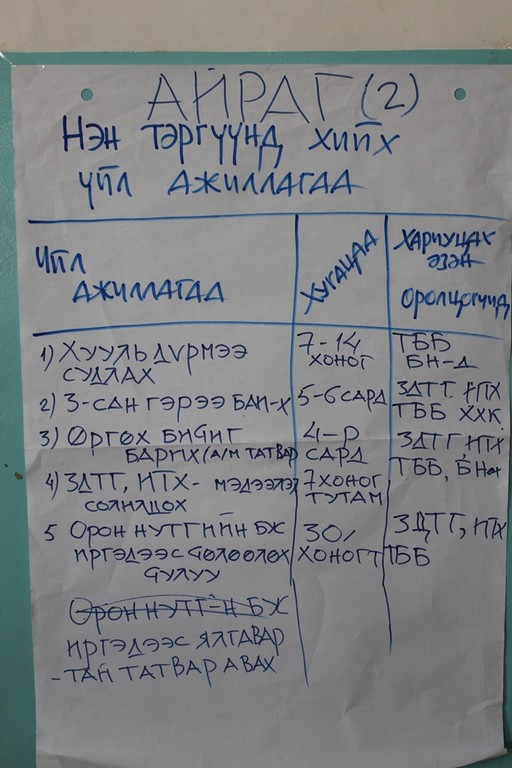 АЙРАГ (2)
Нэн тэргүүнд хийх
үйл ажиллагаа
Үйл
ажиллагаа
Хугацаа
Хариуцах
эзэн
оролцогчид
1) Хууль дүрмээ
судлах
7-14
хоног
ТББ
БН-Д
2) 3-сан гэрээ бай-х
5-6 сард
ЗДТГ. ИТХ
ТББ ХХК
3) Өргөх бичиг
барих (а/м татвар
4-р
сард
ЗДТГ, ИТХ
ТББ,
4) ЗДТГ, ИТХ- мэдээлэл
солилцох
7 хоног
тутам
5 Орон нутгийн БЖ
иргэдээс сөлөөлөх
чулуу
30/
хоногт
ЗДТГ, ИТХ
ТББ
Орон нутг-н БЖ
иргэдээс ялгавар
-тай татвар авах